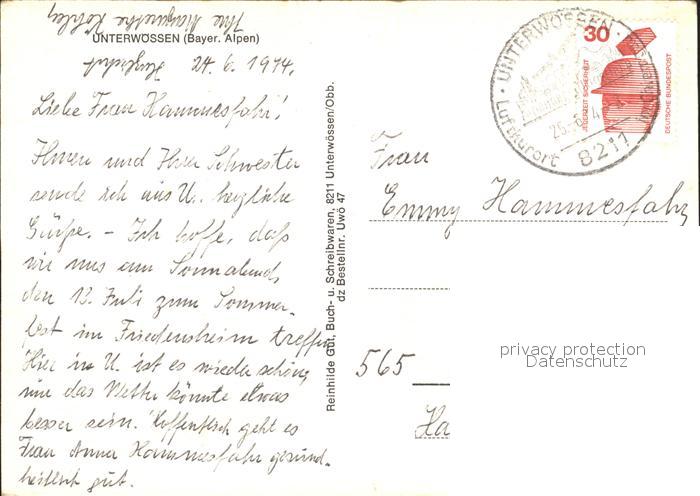 UNTERWÖSSEN (Bayer. Alpen)
24. 6. 1974.
Liebe Frau Hammesfahr!
Ihnen und Ihrer Schwester
sende ich aus U. herzliche
Grüße. - Ich hoffe, daß
wir uns am Sonnabend,
den 13. Juli zum Sommer-
fest im Friedensheim treffen
Hier in U. ist es wieder schön,
nur das Wetter könnte etwas
besser sein. Hoffentlich geht es
Frau Anna Hammesfahr gesund-
heitlich gut.
Herzlichst
Ihre Margarethe Köhler
Reinhilde Gut, Buch- u. Schreibwaren, 8211 Unterwössen/Obb.
dz Bestellnr. Uwö 47
UNTERWÖSSEN
Luftkurort
8211
30
JEDERZEIT SICHERHEIT
DEUTSCHE BUNDESPOST
Frau
Emmy Hammesfahr
565
Ha
privacy protection
Datenschutz